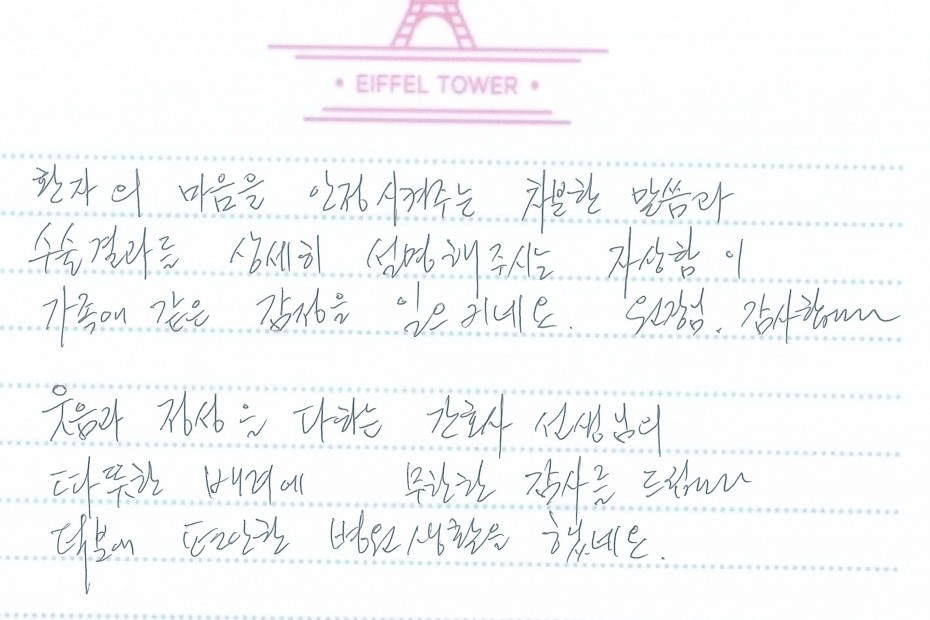 • EIFFEL TOWER •
환자의 마음을 안정시켜주는 차분한 말씀과
수술결과를 상세히 설명해주시는 자상함이
가족애 같은 감정을 일으키네요. 원장님, 감사합니다
웃음과 정성을 다하는 간호사 선생님의
따뜻한 배려에 무한한 감사를 드립니다
덕분에 편안한 병원생활을 했네요.